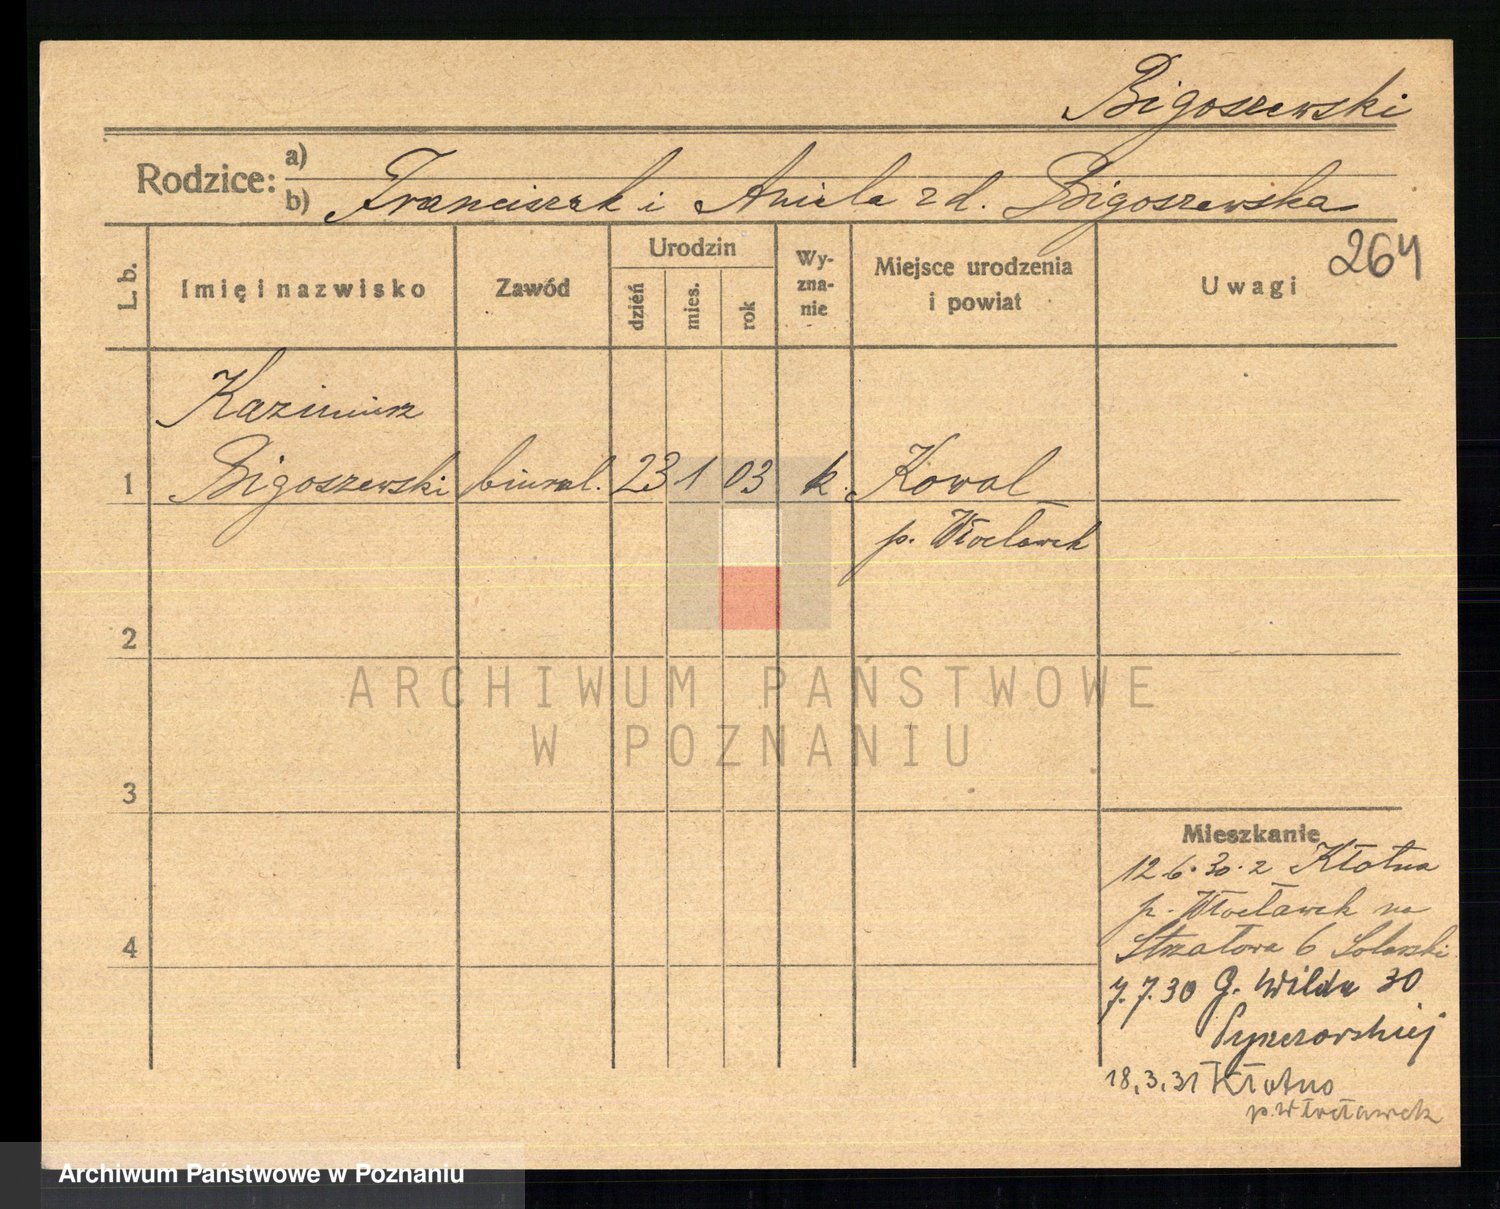 Bigoszewski
Rodzice:
a)
b) Franciszek i Aniela z d. Bigoszewska
264
L. b.
Imię i nazwisko
Zawód
Urodzin
dzień
mies.
rok
Wy-
zna-
nie
Miejsce urodzenia
i powiat
Uwagi
Kazimierz
1 Bigoszewski biural. 23 1 03 k. Kowal
p. Włocławek
2
ARCHIWUM PAŃSTWOWE
W POZNANIU
3
Mieszkanie
12.6.30. z Kłotna
p. Włocławek na
4 Strzałowa 6
7.7.30 G. Wilda 30
18.3.31 Kłotno
p. Włocławek
Archiwum Państwowe w Poznaniu